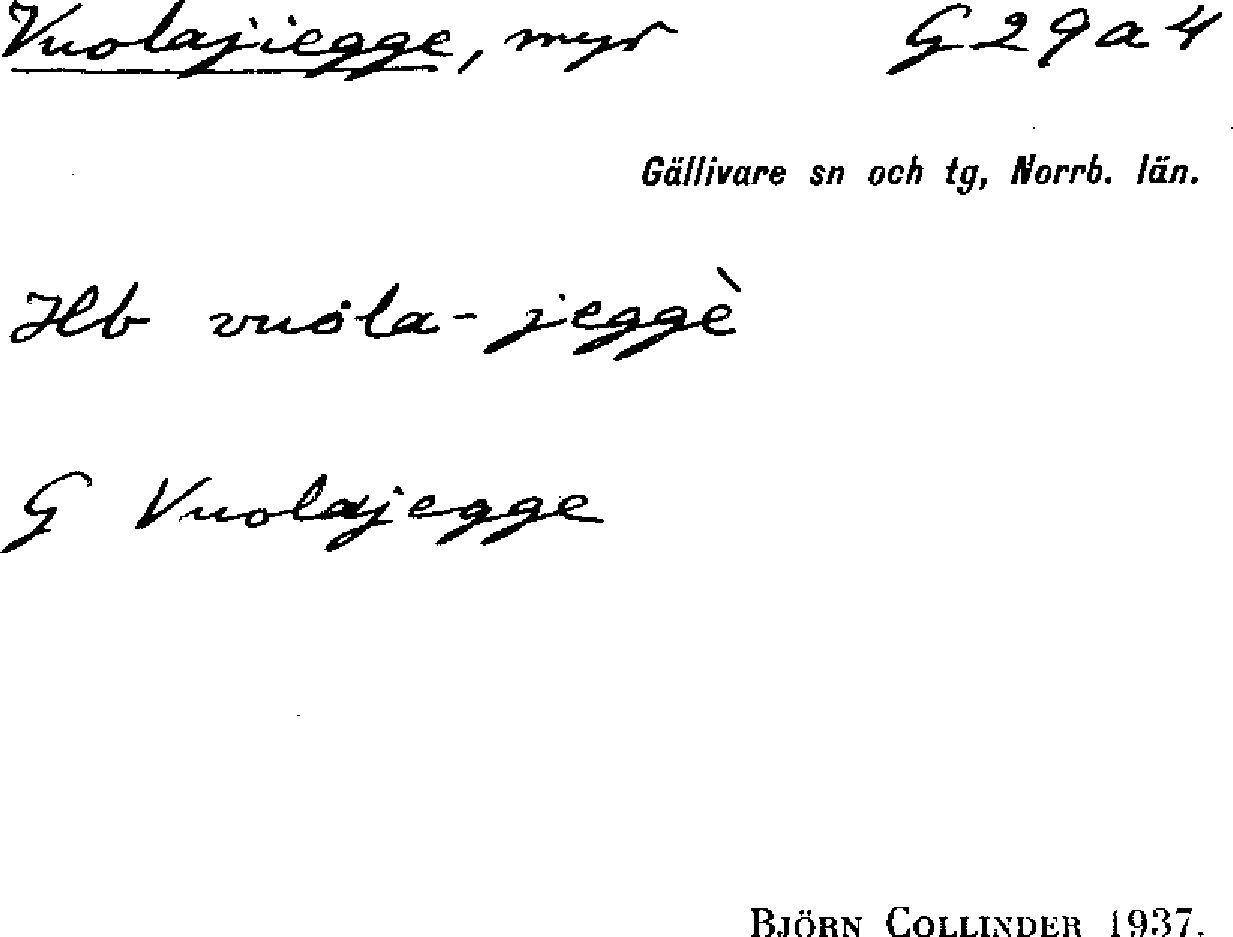 Vuolajiegge, myr G 29 a 4
Gällivare sn och tg, Norrb. län.
Hb vuȯla-jeggè
G Vuolajegge
BJÖRN COLLINDER 1937.